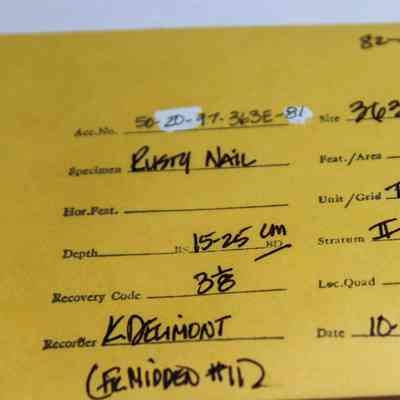 82-
Acc.No. 50-20-97-363E-81 Site 363
Specimen Rusty Nail Feat./Area
Hor.Feat. Unit/Grid
Depth BS 15-25 cm BD Stratum II
Recovery Code 3 1/8 Loc.Quad
Recorder K DELIMONT Date 10-
(FR. MIDDEN #11)